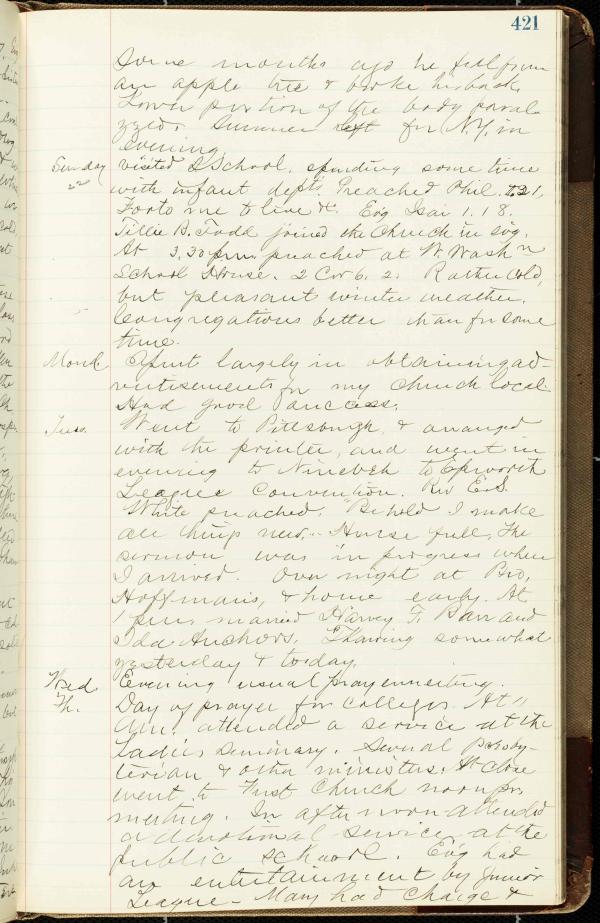 421
Some months ago he fell from
an apple tree & broke his back.
Lower portion of the body paral
yzed. Summer left for N.Y. in
evening.
Sunday visited S School, spending some time
22 with infant dept. Preached Phil. 1.21,
For to me to live &c. Ev'g Isai 1.18.
Tillie B. Todd joined the Church in evg.
At 3.30 pm preached at W. Wash n
School House. 2 Cor 6. 2. Rather cold,
but pleasant winter weather.
Congregations better than for some
time.
Mond. Spent largely in obtaining ad-
vertisements for my Church local.
Had good success.
Tues. Went to Pittsburgh, & arranged
with the printer, and went in
evening to Nineveh to Epworth
League Convention. Rev E.S.
White preached. Behold I make
all things new. House full. The
sermon was in progress when
I arrived. Over night at Bro.
Hoffman's, & home early. At
1 pm married Harvey F. Barr and
Ida Anchors. Thawing somewhat
yesterday & today.
Wed. Evening usual prayermeeting.
Th. Day of prayer for Colleges. At 11
Am. attended a service at the
Ladies Seminary. Several Presby-
terian & other ministers. At close
went to First Church noon pr.
meeting. In afternoon attended
a devotional service at the
public school. Ev'g had
an entertainment by Junior
League - Mary had charge &